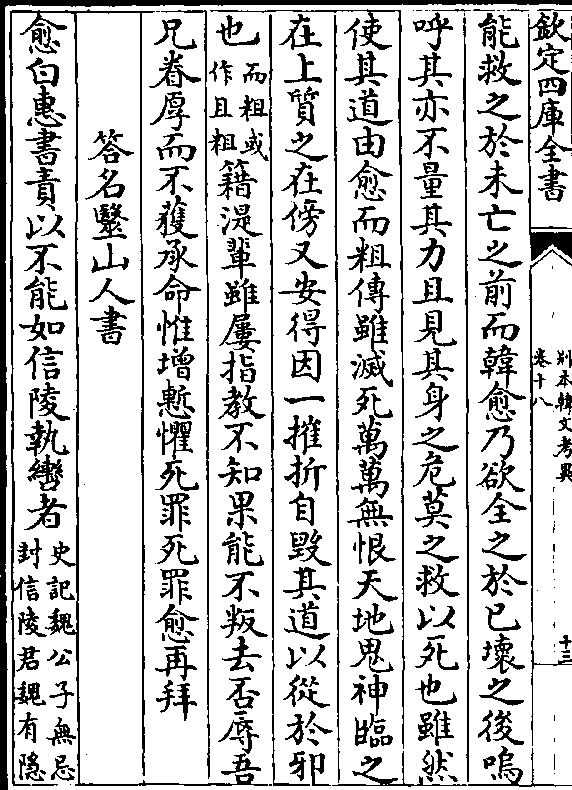 欽定四庫全書
別本韓文考異
卷十八
十三
能救之於未亡之前而韓愈乃欲全之於已壞之後嗚
呼其亦不量其力且見其身之危莫之救以死也雖然
使其道由愈而粗傳雖滅死萬萬無恨天地鬼神臨之
在上質之在傍又安得因一摧折自毀其道以從於邪
也而粗或作且粗籍湜輩雖屢指教不知果能不叛去否辱吾
兄眷厚而不獲承命惟增慙懼死罪死罪愈再拜
答名毉山人書
愈白惠書責以不能如信陵執轡者史記魏公子無忌封信陵君魏有隱